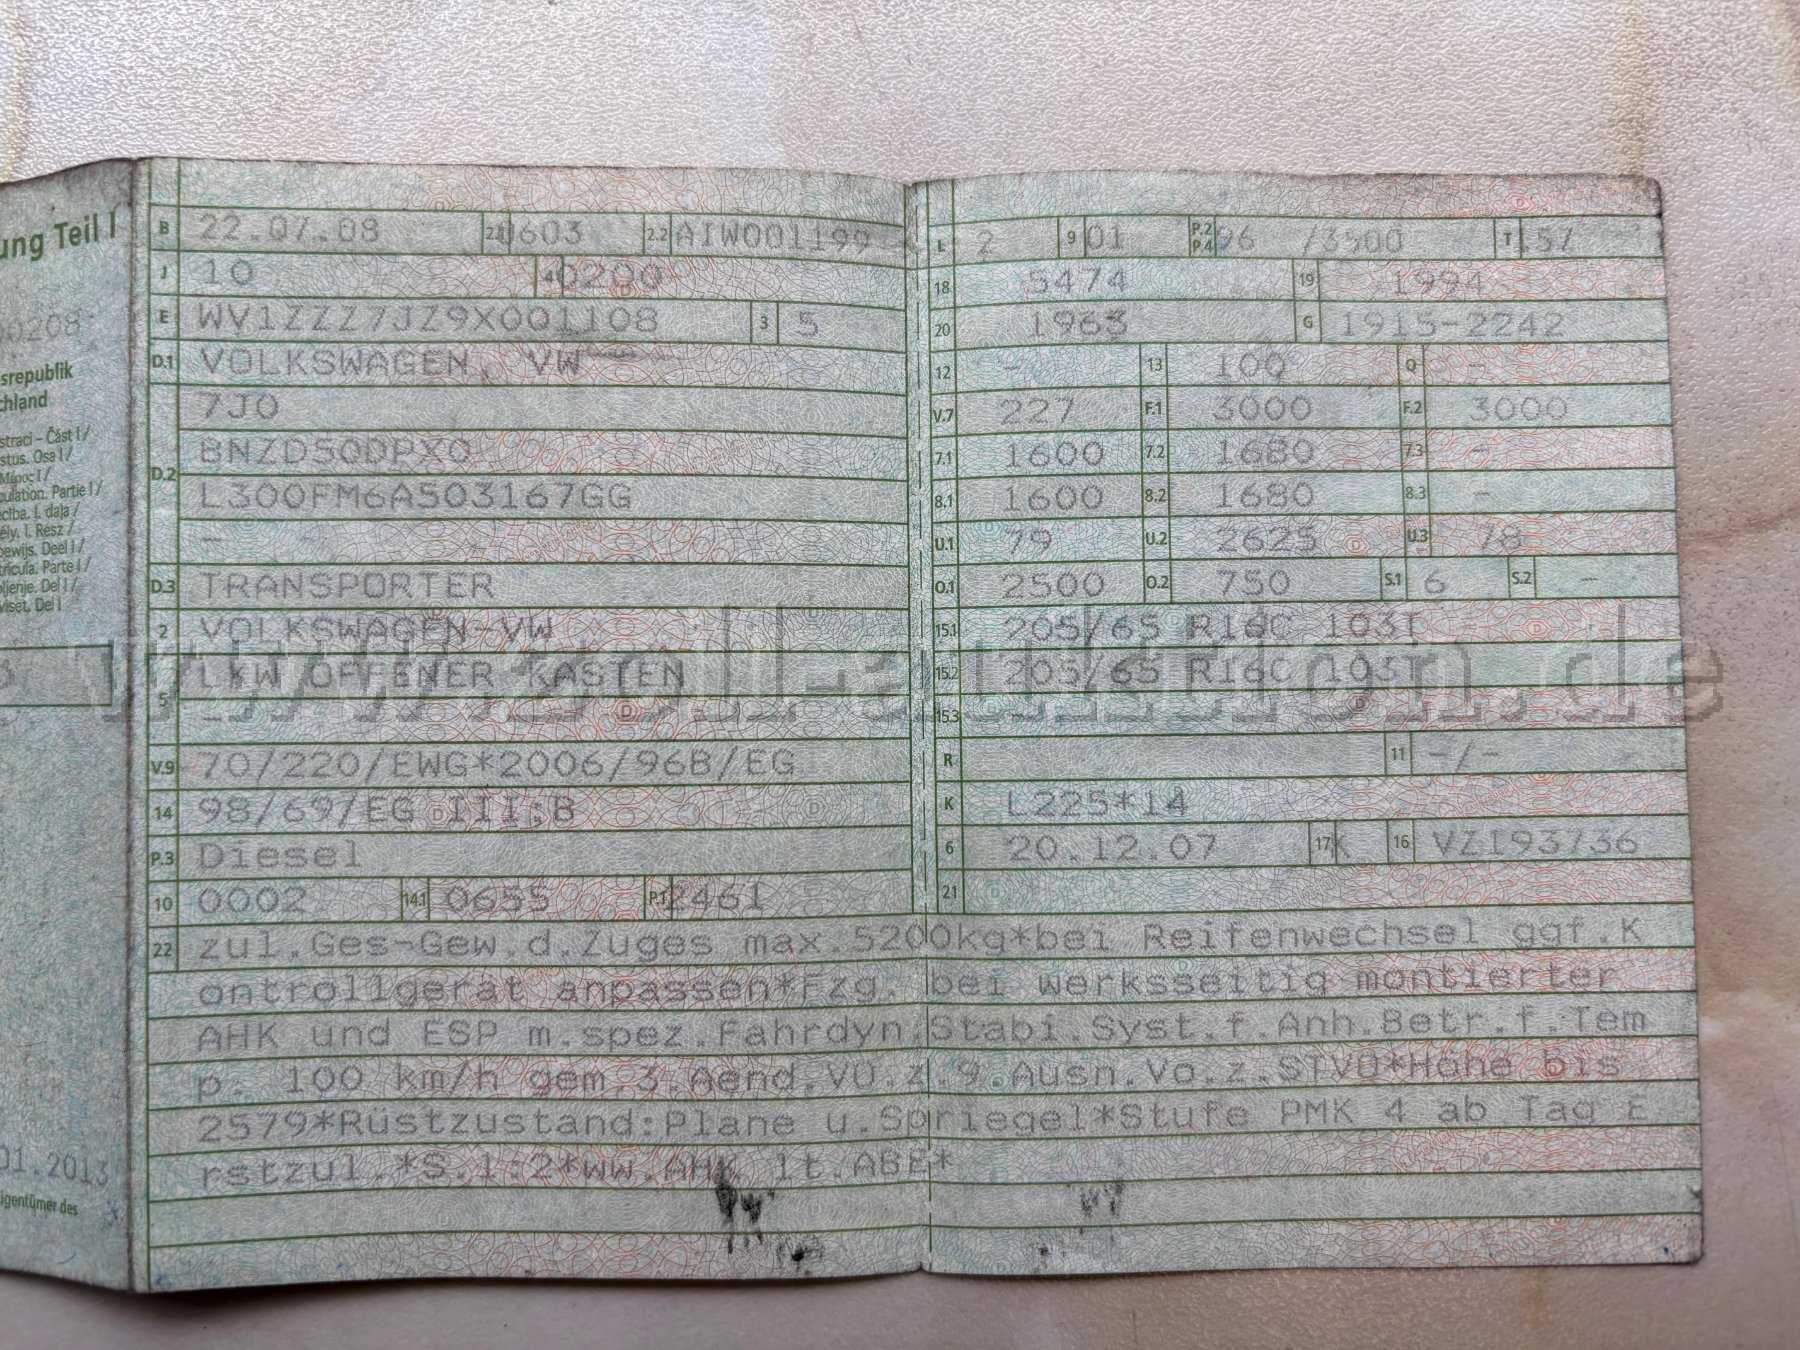 ung Teil I
00208
srepublik
chland
straci – Část I /
stus. Osa I /
ulation. Partie I /
ēcība. I. daļa /
ély. I. Rész /
bewijs. Deel I /
trícula. Parte I /
oljenje. Del I /
viset. Del I
01.2013
igentümer des
B 22.07.08 2.1 0603 2.2 AIW001199
J 10 4 0200
E WV1ZZZ7JZ9X001108 3 5
D.1 VOLKSWAGEN, VW
7J0
D.2 BNZD50DPX0
L300FM6A503167GG
–
D.3 TRANSPORTER
2 VOLKSWAGEN-VW
5 LKW OFFENER KASTEN
–
V.9 70/220/EWG*2006/96B/EG
14 98/69/EG III;B
P.3 Diesel
10 0002 14.1 0655 P.1 2461
L 2 9 01 P.2 P.4 96 /3500 T 157
18 5474 19 1994
20 1963 G 1915-2242
12 – 13 100 Q –
V.7 227 F.1 3000 F.2 3000
7.1 1600 7.2 1680 7.3 –
8.1 1600 8.2 1680 8.3 –
U.1 79 U.2 2625 U.3 78
O.1 2500 O.2 750 S.1 6 S.2 –
15.1 205/65 R16C 103T
15.2 205/65 R16C 103T
15.3 –
R 11 –/–
K L225*14
6 20.12.07 17 K 16 VZ193736
21
22 zul.Ges-Gew.d.Zuges max.5200kg*bei Reifenwechsel ggf.K
ontrollgerät anpassen*Fzg. bei werksseitig montierter
AHK und ESP m.spez.Fahrdyn.Stabi.Syst.f.Anh.Betr.f.Tem
p. 100 km/h gem.3.Aend.VO.z.9.Ausn.Vo.z.STVO*Höhe bis
2579*Rüstzustand:Plane u.Spriegel*Stufe PMK 4 ab Tag E
rstzul.*S.1:2*ww.AHK lt.ABE*
www.zoll-auktion.de